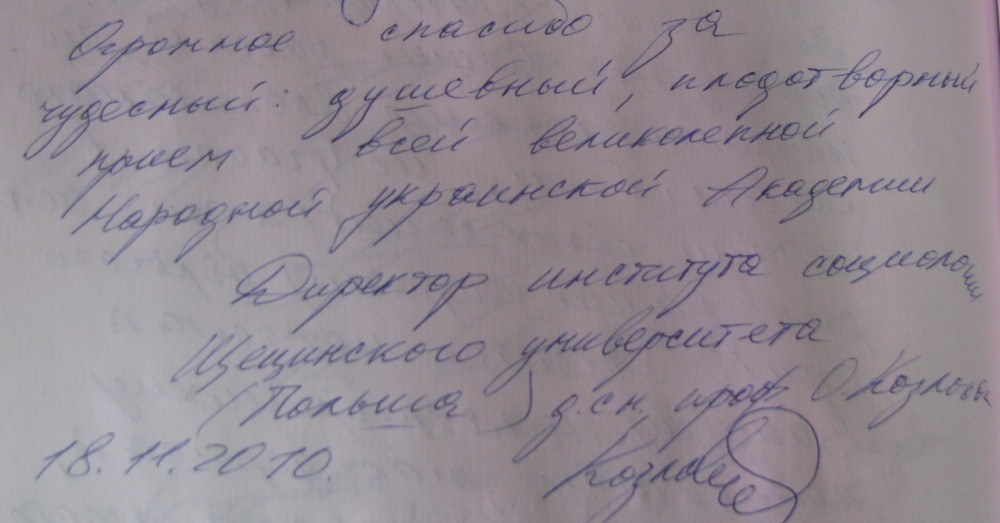 Огромное спасибо за
чудесный: душевный, плодотворный
прием всей великолепной
Народной украинской Академии
Директор института социологии
Щецинского университета
(Польша) д.с.н., проф. О. Козлова
18.11.2010.